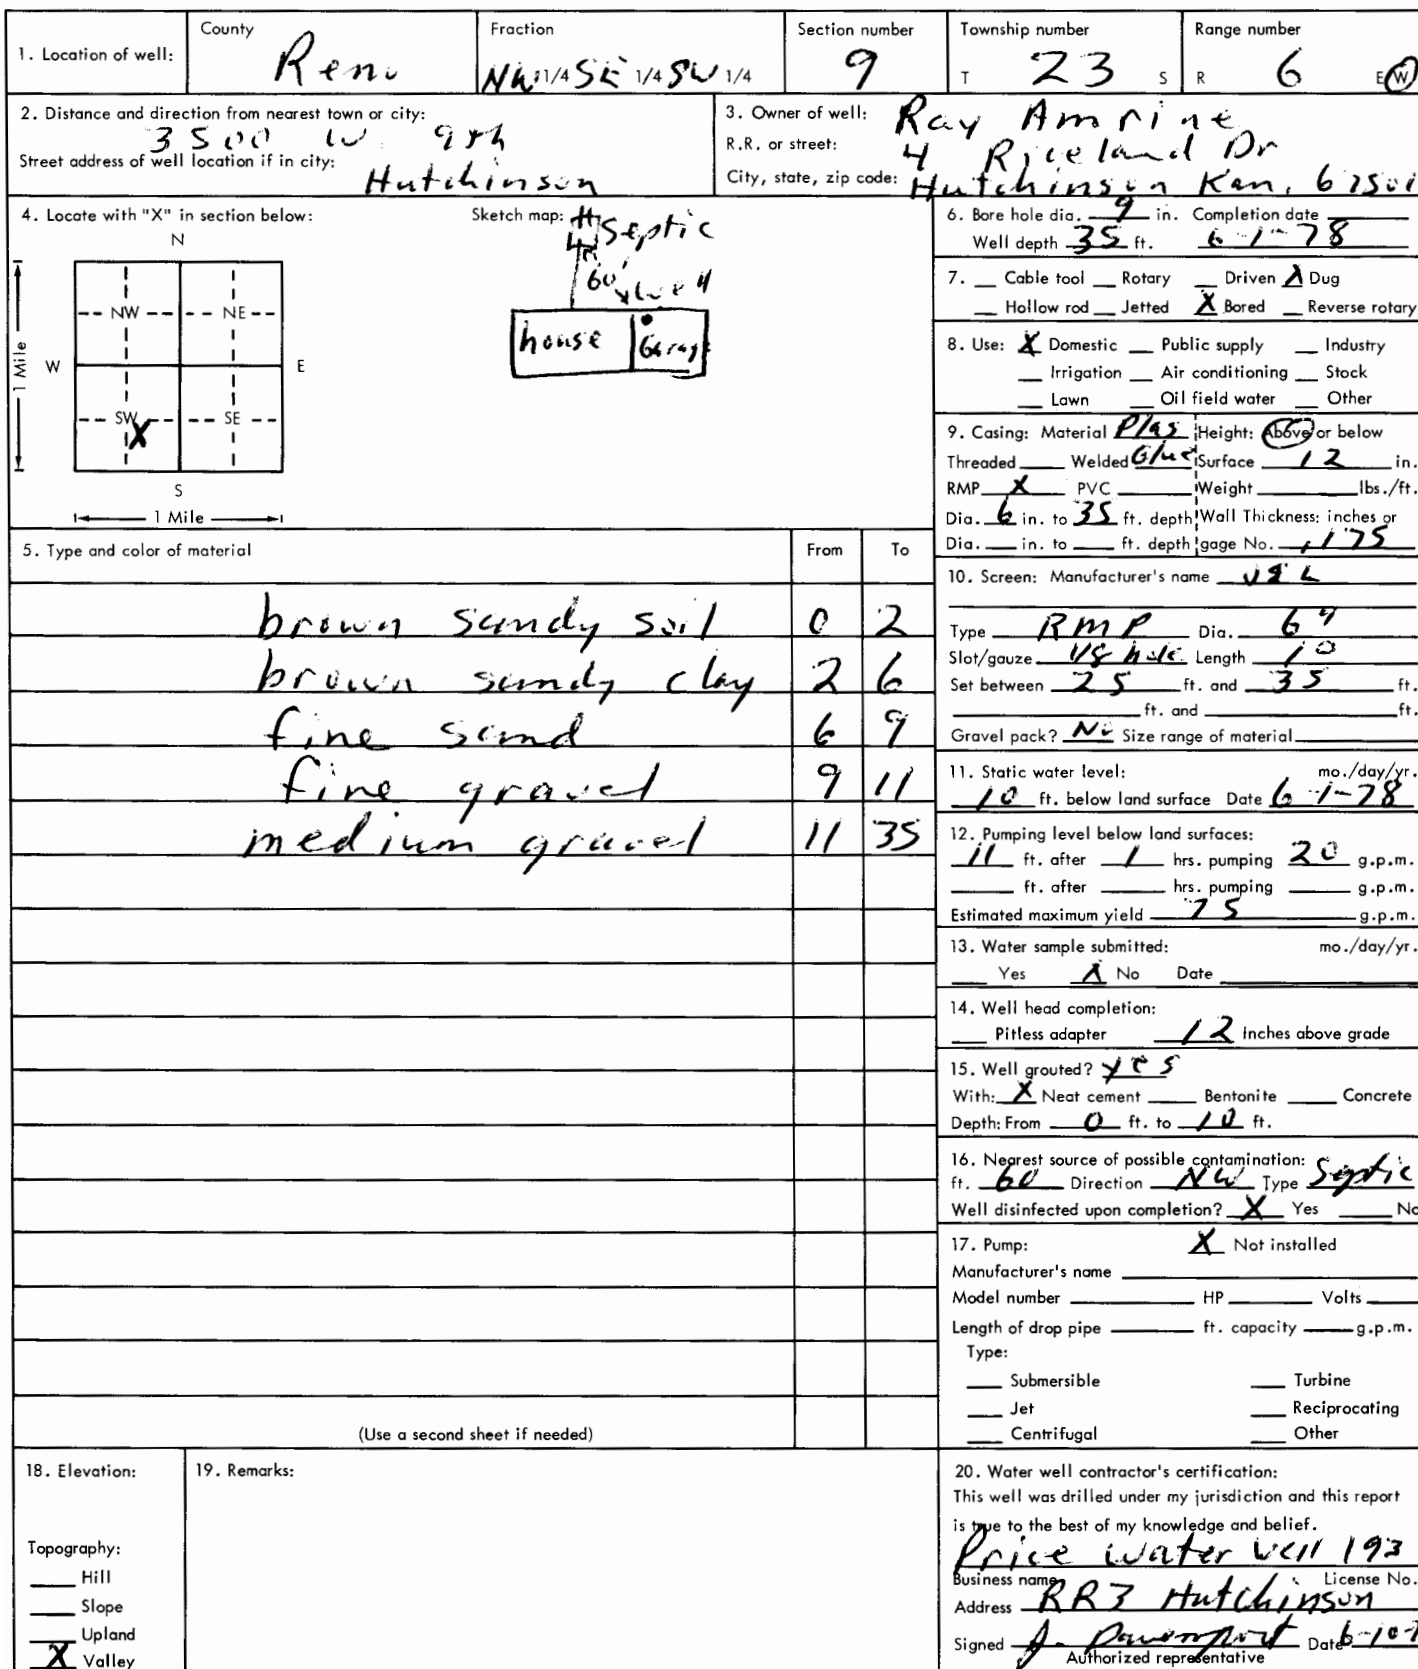 1. Location of well: County Reno Fraction NW 1/4 SE 1/4 SW 1/4 Section number 9 Township number T 23 S Range number R 6 E W
2. Distance and direction from nearest town or city: 3500 W. 9th
Street address of well location if in city: Hutchinson
3. Owner of well: Ray Amrine
R.R. or street: 4 Riceland Dr
City, state, zip code: Hutchinson Kan. 67501
4. Locate with "X" in section below:
N
NW NE
W E
SW X SE
S
1 Mile
1 Mile
Sketch map:
Septic
60'
house Garage
5. Type and color of material From To
brown sandy soil 0 2
brown sandy clay 2 6
fine sand 6 9
fine gravel 9 11
medium gravel 11 35
(Use a second sheet if needed)
6. Bore hole dia. 9 in. Completion date
Well depth 35 ft. 6-1-78
7. Cable tool Rotary Driven X Dug
Hollow rod Jetted X Bored Reverse rotary
8. Use: X Domestic Public supply Industry
Irrigation Air conditioning Stock
Lawn Oil field water Other
9. Casing: Material Plas Height: Above or below
Threaded Welded Glue Surface 12 in.
RMP X PVC Weight lbs./ft.
Dia. 6 in. to 35 ft. depth Wall Thickness: inches or
Dia. in. to ft. depth gage No. .175
10. Screen: Manufacturer's name
Type RMP Dia. 6"
Slot/gauze 1/8 hole Length 10
Set between 25 ft. and 35 ft.
ft. and ft.
Gravel pack? No Size range of material
11. Static water level: mo./day/yr.
10 ft. below land surface Date 6-1-78
12. Pumping level below land surfaces:
11 ft. after 1 hrs. pumping 20 g.p.m.
ft. after hrs. pumping g.p.m.
Estimated maximum yield 75 g.p.m.
13. Water sample submitted: mo./day/yr.
Yes X No Date
14. Well head completion:
Pitless adapter 12 Inches above grade
15. Well grouted? yes
With: X Neat cement Bentonite Concrete
Depth: From 0 ft. to 10 ft.
16. Nearest source of possible contamination:
ft. 60 Direction NW Type Septic
Well disinfected upon completion? X Yes No
17. Pump: X Not installed
Manufacturer's name
Model number HP Volts
Length of drop pipe ft. capacity g.p.m.
Type:
Submersible Turbine
Jet Reciprocating
Centrifugal Other
18. Elevation:
Topography:
Hill
Slope
Upland
X Valley
19. Remarks:
20. Water well contractor's certification:
This well was drilled under my jurisdiction and this report
is true to the best of my knowledge and belief.
Price Water Well 193
Business name License No.
Address RR3 Hutchinson
Signed J. Davenport Date 6-10-7
Authorized representative